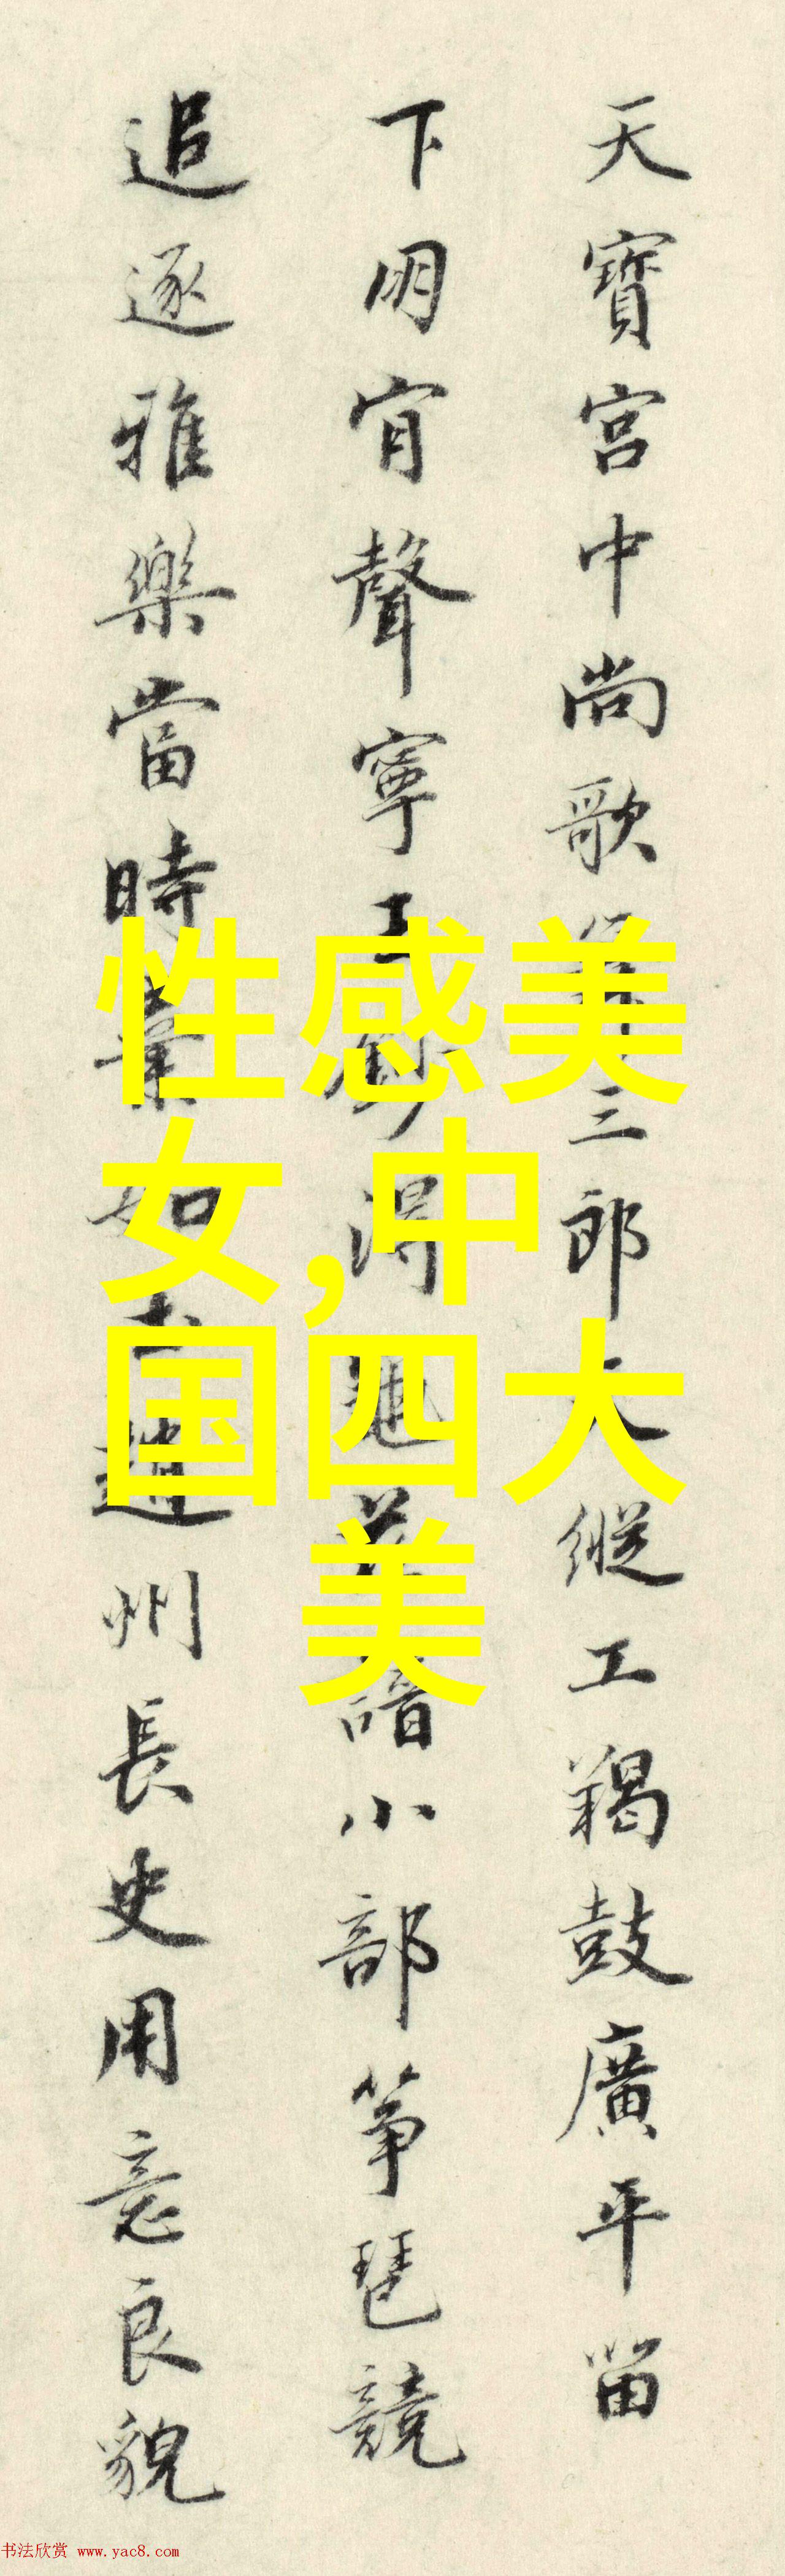 天寶宮中尚歌三郎大縱工羯鼓廣平留
下朋肯聲寧王得小部箏琶競
追逐雅樂當時棄如土趙州長史用意良貌
性感美
女,中
国四大
美
书法欣赏 www.yac8.com